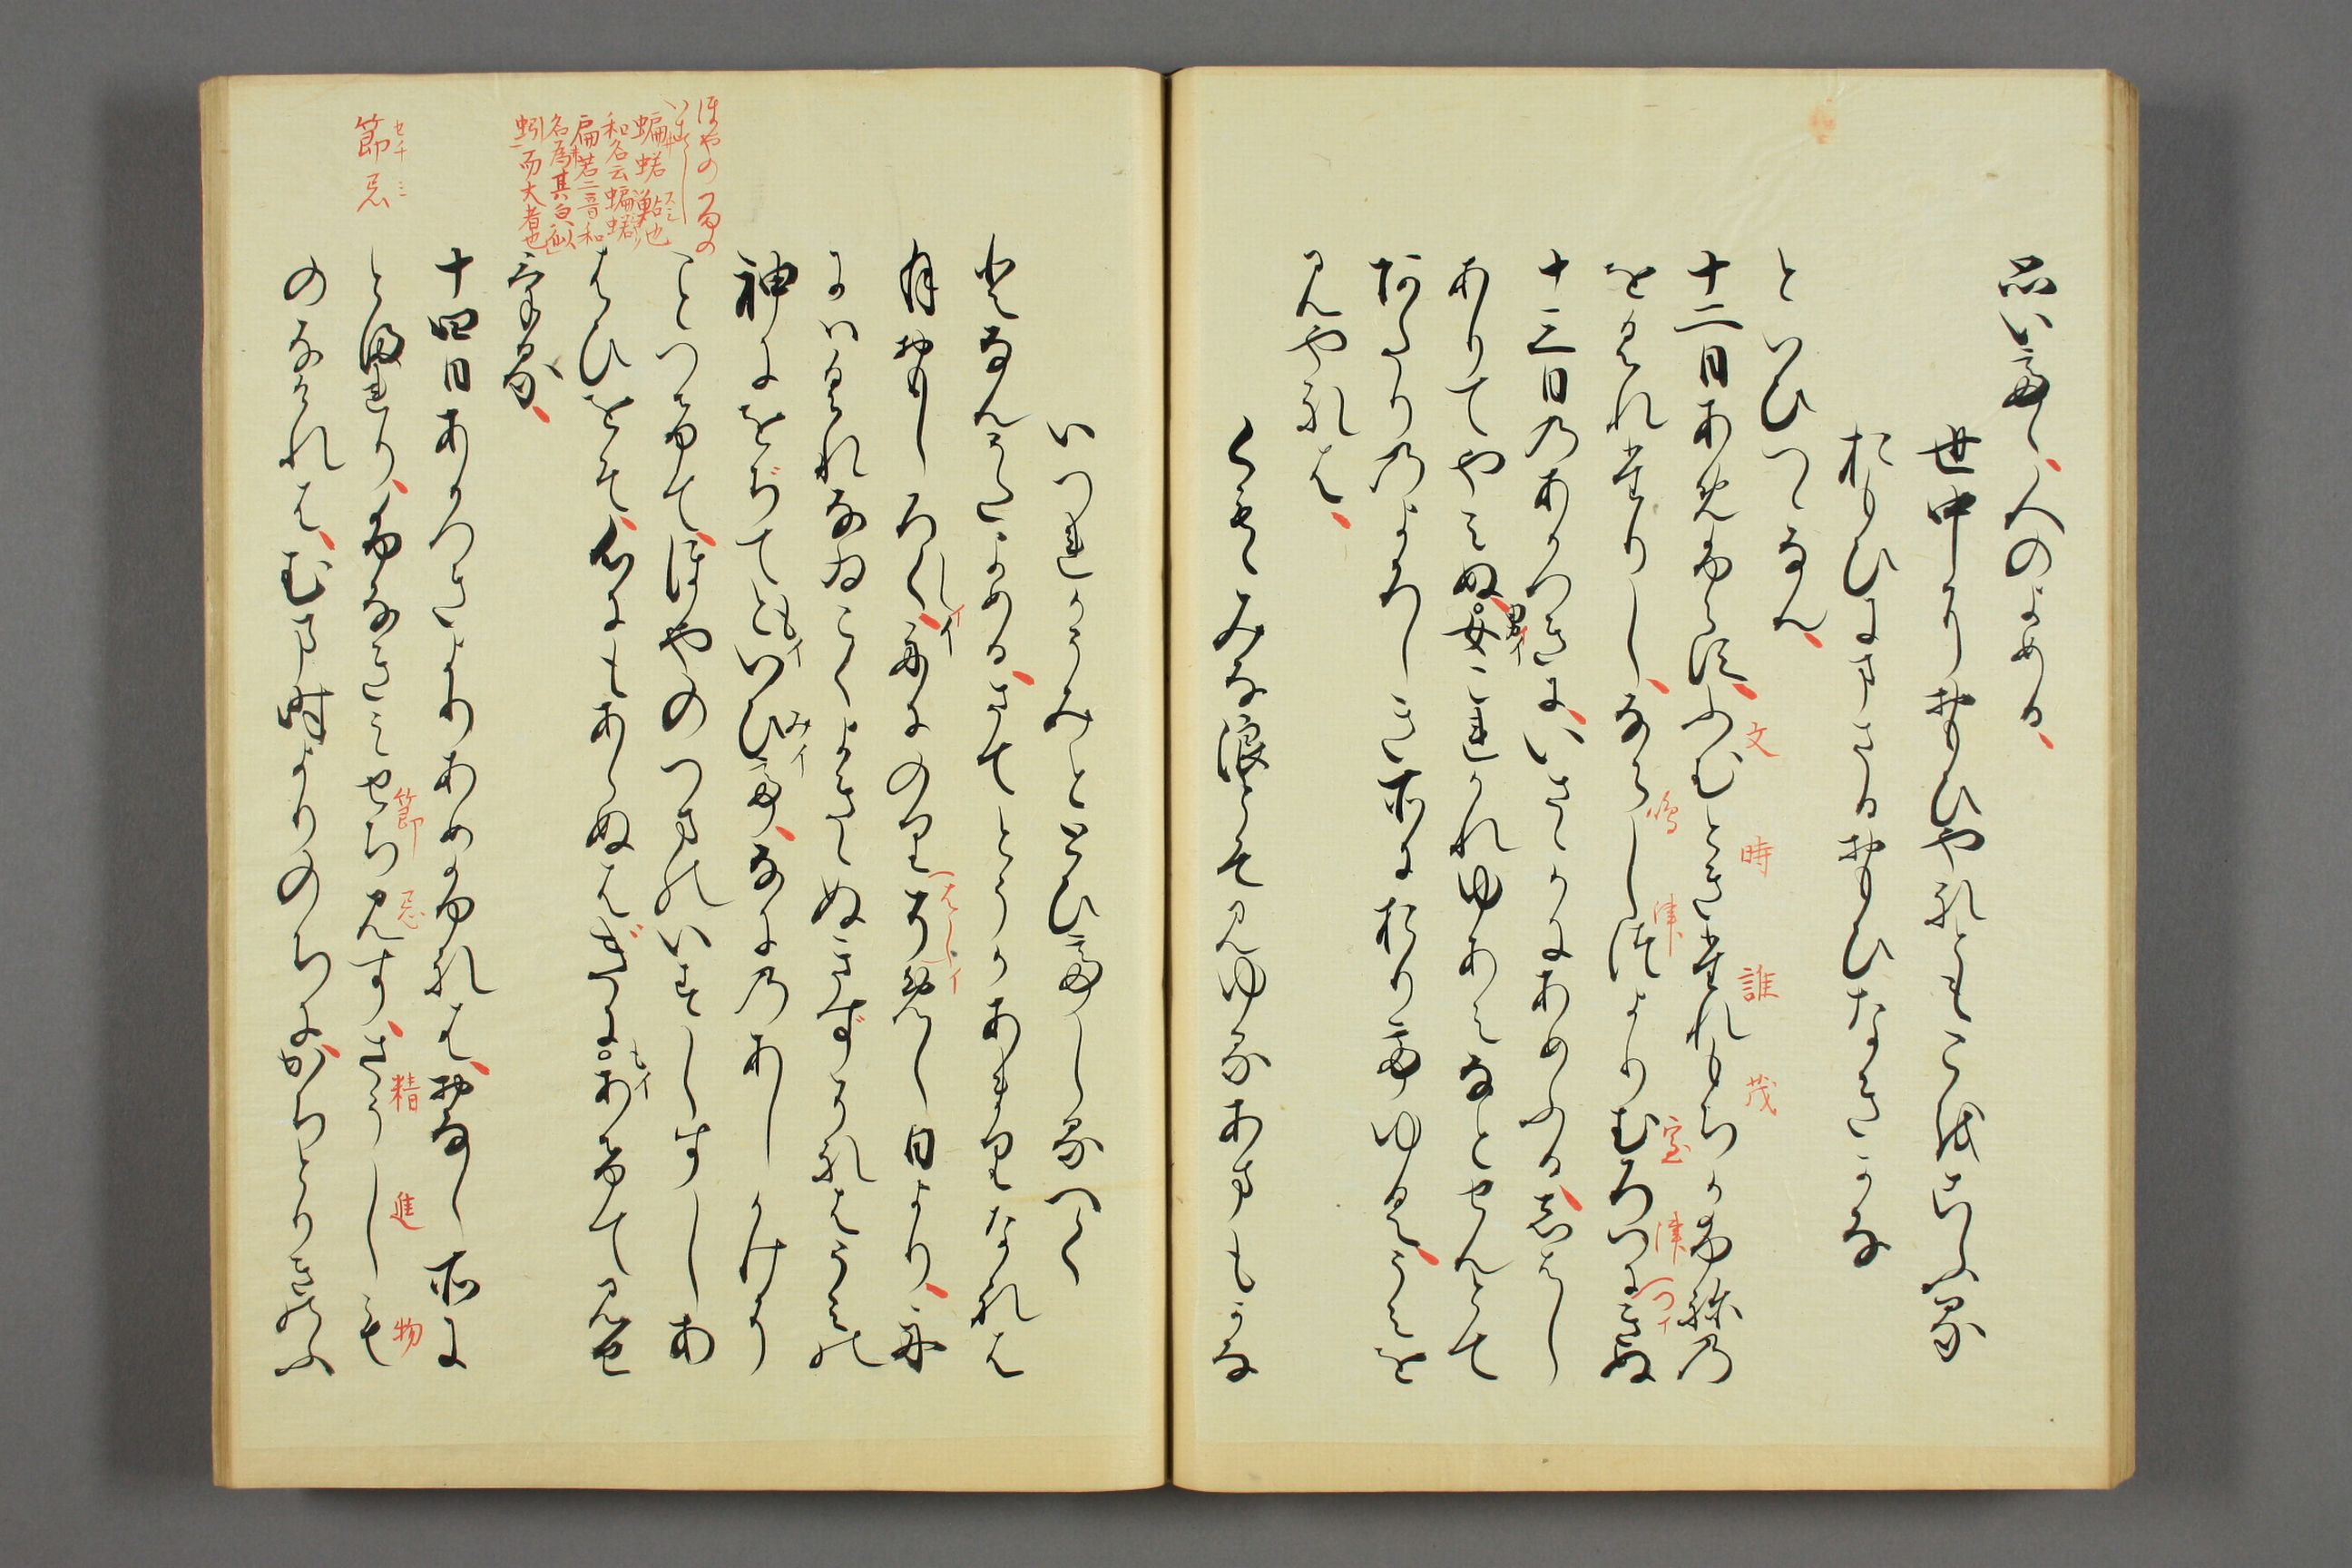 思い出て、人のよめる、
世中におもひやれともこをこふる
おもひにまさるおもひなきかな
といひつゝなん、
十二日あめふらす、ふむときこれもちかふねの
文 時 誰 茂
をくれたりし、ならしつよりむろつにきぬ
鳴 津 室 津
十三日のあかつきに、いさゝかにあめふる、しはし
ありてやみぬ、女これかれゆあみなとせんとて
あたりのよろしき所におりてゆく、うみを
見やれは、
くもゝみな浪とそ見ゆるあまもかな
いつれかうみとゝひてしるへく
となんうたよめる、さてとうかあまりなれは
月おもしろく、舟にのりはしめし日より、舟
しイ
にはくれなゐこくよききぬきず、それはうみの
神にをぢてといひて、なにのあしかけに
もイ みイ
ことつけて、ほやのつまのいすしすしあ
はひをそ、心にもあらぬはぎにあけて見せ
もイ
ける、
十四日あかつきよりあめふれは、おなし所に
とまれり、ふなきみせち見す、さうしもの
節 忌 精 進 物
のなけれは、むま時よりのちに、かちとりきのふ
ほやのつまの
いすし
和名云
名為其
蚓而大者也
節忌
セチミ